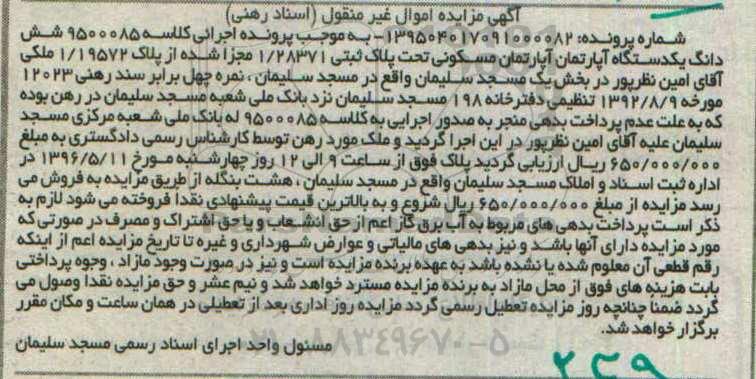 آگهی مزایده اموال غیر منقول (اسناد رهنی)
شماره پرونده: ۱۳۹۵۰۴۰۱۷۰۹۱۰۰۰۰۸۲ - به موجب پرونده اجرائی کلاسه ۹۵۰۰۰۸۵ شش
دانگ یکدستگاه آپارتمان آپارتمان مسکونی تحت پلاک ثبتی ۱/۲۸۳۷۱ مجزا شده از پلاک ۱/۱۹۵۷۲ ملکی
آقای امین نظرپور در بخش یک مسجد سلیمان واقع در مسجد سلیمان ، نمره چهل برابر سند رهنی ۱۲۰۲۳
مورخه ۱۳۹۲/۸/۹ تنظیمی دفترخانه ۱۹۸ مسجد سلیمان نزد بانک ملی شعبه مسجد سلیمان در رهن بوده
که به علت عدم پرداخت بدهی منجر به صدور اجرایی به کلاسه ۹۵۰۰۰۸۵ له بانک ملی شعبه مرکزی مسجد
سلیمان علیه آقای امین نظرپور در این اجرا گردید و ملک مورد رهن توسط کارشناس رسمی دادگستری به مبلغ
۶۵۰/۰۰۰/۰۰۰ ریال ارزیابی گردید پلاک فوق از ساعت ۹ الی ۱۲ روز چهارشنبه مورخ ۱۳۹۶/۵/۱۱ در
اداره ثبت اسناد و املاک مسجد سلیمان واقع در مسجد سلیمان ، هشت بنگله از طریق مزایده به فروش می
رسد مزایده از مبلغ ۶۵۰/۰۰۰/۰۰۰ ریال شروع و به بالاترین قیمت پیشنهادی نقدا فروخته می شود لازم به
ذکر است پرداخت بدهی های مربوط به آب برق گاز اعم از حق انشعاب و یا حق اشتراک و مصرف در صورتی که
مورد مزایده دارای آنها باشد و نیز بدهی های مالیاتی و عوارض شهرداری و غیره تا تاریخ مزایده اعم از اینکه
رقم قطعی آن معلوم شده یا نشده باشد به عهده برنده مزایده است و نیز در صورت وجود مازاد ، وجوه پرداختی
بابت هزینه های فوق از محل مازاد به برنده مزایده مسترد خواهد شد و نیم عشر و حق مزایده نقدا وصول می
گردد ضمنا چنانچه روز مزایده تعطیل رسمی گردد مزایده روز اداری بعد از تعطیلی در همان ساعت و مکان مقرر
برگزار خواهد شد.
مسئول واحد اجرای اسناد رسمی مسجد سلیمان
۰۲۱-۸۸۳۴۹۶۷۰-۵
۲۳۹